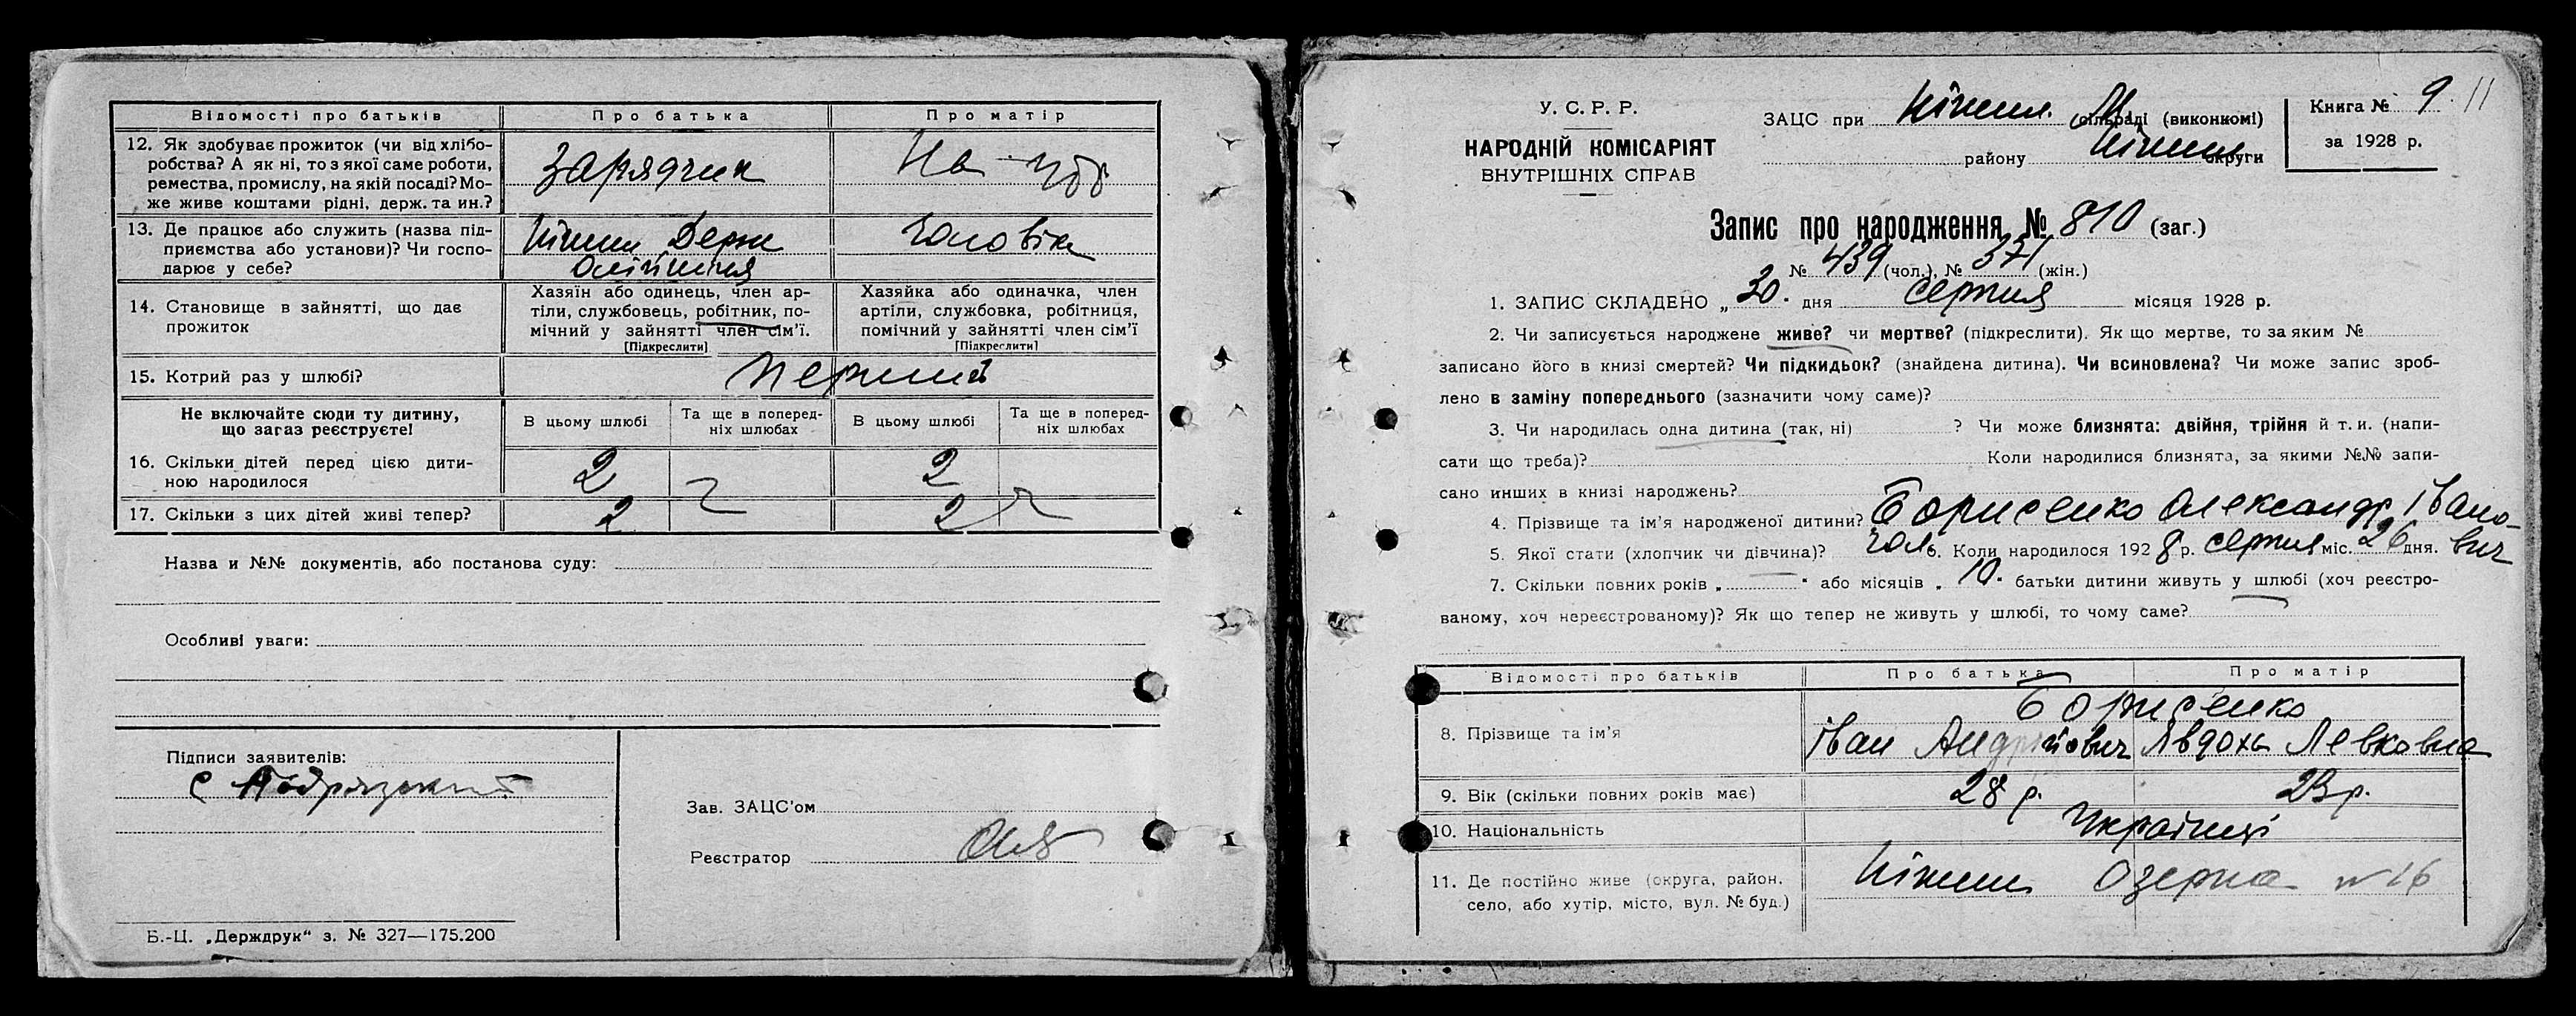 Відомості про батьків Про батька Про матір
12. Як здобуває прожиток (чи від хлібо-
робства? А як ні, то з якої саме роботи,
ремества, промислу, на якій посаді? Мо-
же живе коштами рідні, держ. та ин.?
Зарядчик На утр
13. Де працює або служить (назва під-
приємства або установи)? Чи госпо-
дарює у себе?
Ніжин Держ Чоловік
Олійниця
14. Становище в зайнятті, що дає
прожиток
Хазяїн або одинець, член ар-
тіли, службовець, робітник, по-
мічний у зайнятті член сім'ї.
[Підкреслити]
Хазяйка або одиначка, член
артіли, службовка, робітниця,
помічний у зайнятті член сім'ї
[Підкреслити]
15. Котрий раз у шлюбі? перший
Не включайте сюди ту дитину,
що зараз реєструєте!
В цьому шлюбі Та ще в поперед-
ніх шлюбах В цьому шлюбі Та ще в поперед-
ніх шлюбах
16. Скільки дітей перед цією дити-
ною народилося 2 2
17. Скільки з цих дітей живі тепер? 2 2
Назва и №№ документів, або постанова суду:
Особливі уваги:
Підписи заявителів:
Зав. ЗАЦС'ом
Реєстратор
Б.-Ц. „Держдрук“ з. № 327—175.200
У. С. Р. Р.
НАРОДНІЙ КОМІСАРІЯТ
ВНУТРІШНІХ СПРАВ
ЗАЦС при Ніжин. М. сільраді (виконкомі)
району Ніжин округи
Книга № 9 11
за 1928 р.
Запис про народження № 810 (заг.)
№ 439 (чол.), № 371 (жін.)
1. ЗАПИС СКЛАДЕНО „30. дня серпня місяця 1928 р.
2. Чи записується народжене живе? чи мертве? (підкреслити). Як що мертве, то за яким №
записано його в книзі смертей? Чи підкидьок? (знайдена дитина). Чи всиновлена? Чи може запис зроб-
лено в заміну попереднього (зазначити чому саме)?
3. Чи народилась одна дитина (так, ні) ? Чи може близнята: двійня, трійня й т. и. (напи-
сати що треба)? Коли народилися близнята, за якими №№ запи-
сано инших в книзі народжень?
4. Прізвище та ім'я народженої дитини? Борисенко Олександр Івано-
вич
5. Якої стати (хлопчик чи дівчина)? чол. 6. Коли народилося 1928 р. серпня міс. 26 дня.
7. Скільки повних років „ “ або місяців „ 10. батьки дитини живуть у шлюбі (хоч реєстро-
ваному, хоч нереєстрованому)? Як що тепер не живуть у шлюбі, то чому саме?
Відомості про батьків Про батька Про матір
8. Прізвище та ім'я Борисенко
Іван Андрійович Явдоха Левковна
9. Вік (скільки повних років має) 28 р. 23 р.
10. Національність Українці
11. Де постійно живе (округа, район,
село, або хутір, місто, вул. № буд.)
Ніжин Озерна № 16